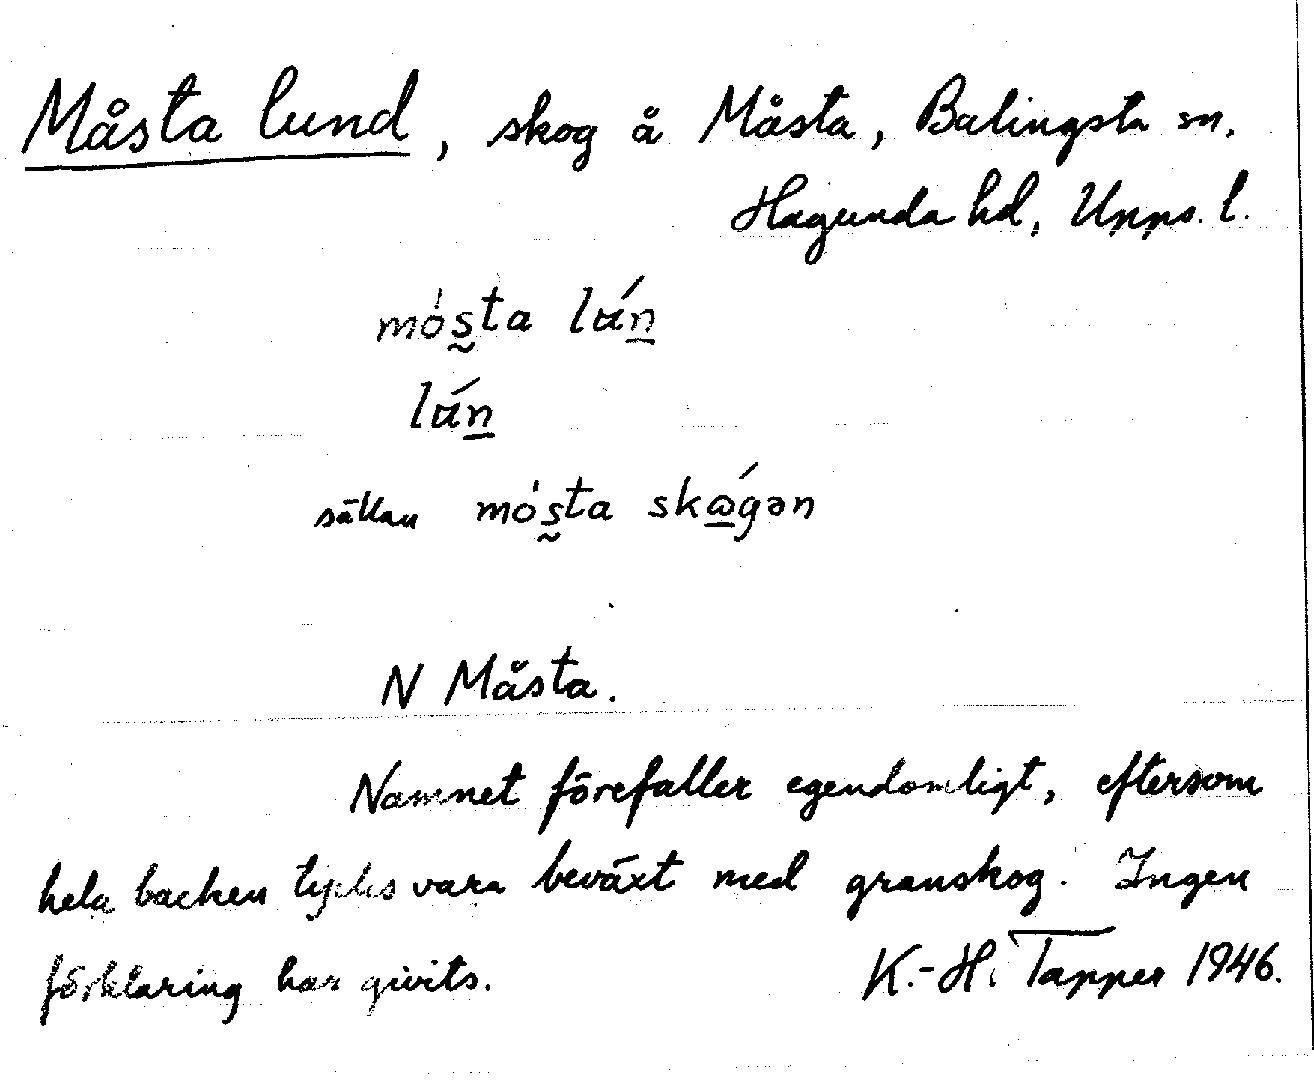 Måsta lund, skog å Måsta, Balingsta sn.
Hagunda hd, Upps. l.
mós̰ta lɯ́n̲
lɯ́n̲
sällan mós̰ta skώ̲gən
N Måsta.
Namnet förefaller egendomligt, eftersom
hela backen tycks vara beväxt med granskog. Ingen
förklaring har givits. K.-H. Tapper 1946.